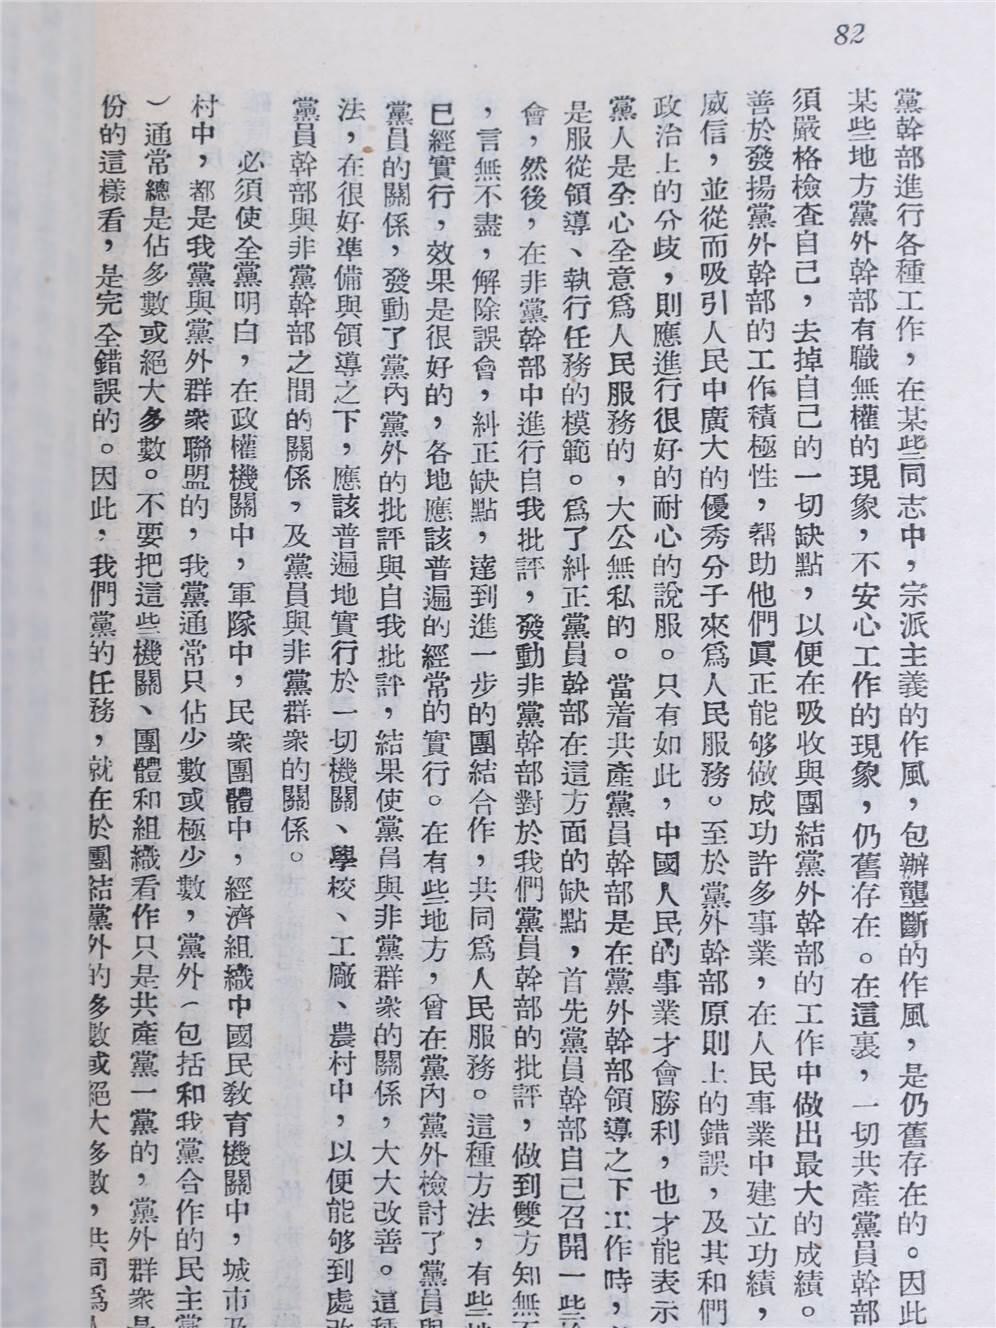 82
黨幹部進行各種工作，在某些同志中，宗派主義的作風，包辦壟斷的作風，是仍舊存在的。因此
某些地方黨外幹部有職無權的現象，不安心工作的現象，仍舊存在。在這裏，一切共產黨員幹部
須嚴格檢查自己，去掉自己的一切缺點，以便在吸收與團結黨外幹部的工作中做出最大的成績。
善於發揚黨外幹部的工作積極性，帮助他們眞正能够做成功許多事業，在人民事業中建立功績，
威信，並從而吸引人民中廣大的優秀分子來爲人民服務。至於黨外幹部原則上的錯誤，及其和們
政治上的分歧，則應進行很好的耐心的說服。只有如此，中國人民的事業才會勝利，也才能表示
黨人是全心全意爲人民服務的，大公無私的。當着共產黨員幹部是在黨外幹部領導之下工作時，
是服從領導、執行任務的模範。爲了糾正黨員幹部在這方面的缺點，首先黨員幹部自己召開一些
會，然後，在非黨幹部中進行自我批評，發動非黨幹部對於我們黨員幹部的批評，做到雙方知無
，言無不盡，解除誤會，糾正缺點，達到進一步的團結合作，共同爲人民服務。這種方法，有些
已經實行，效果是很好的，各地應該普遍的經常的實行。在有些地方，曾在黨內黨外檢討了黨員與
黨員的關係，發動了黨內黨外的批評與自我批評，結果使黨員與非黨群衆的關係，大大改善。這種
法，在很好準備與領導之下，應該普遍地實行於一切機關、學校、工廠、農村中，以便能够到處改
黨員幹部與非黨幹部之間的關係，及黨員與非黨群衆的關係。
必須使全黨明白，在政權機關中，軍隊中，民衆團體中，經濟組織中國民教育機關中，城市及
村中，都是我黨與黨外群衆聯盟的，我黨通常只佔少數或極少數，黨外（包括和我黨合作的民主黨
）通常總是佔多數或絕大多數。不要把這些機關、團體和組織看作只是共產黨一黨的，黨外群衆是
份的這樣看，是完全錯誤的。因此，我們黨的任務，就在於團結黨外的多數或絕大多數，共同爲人